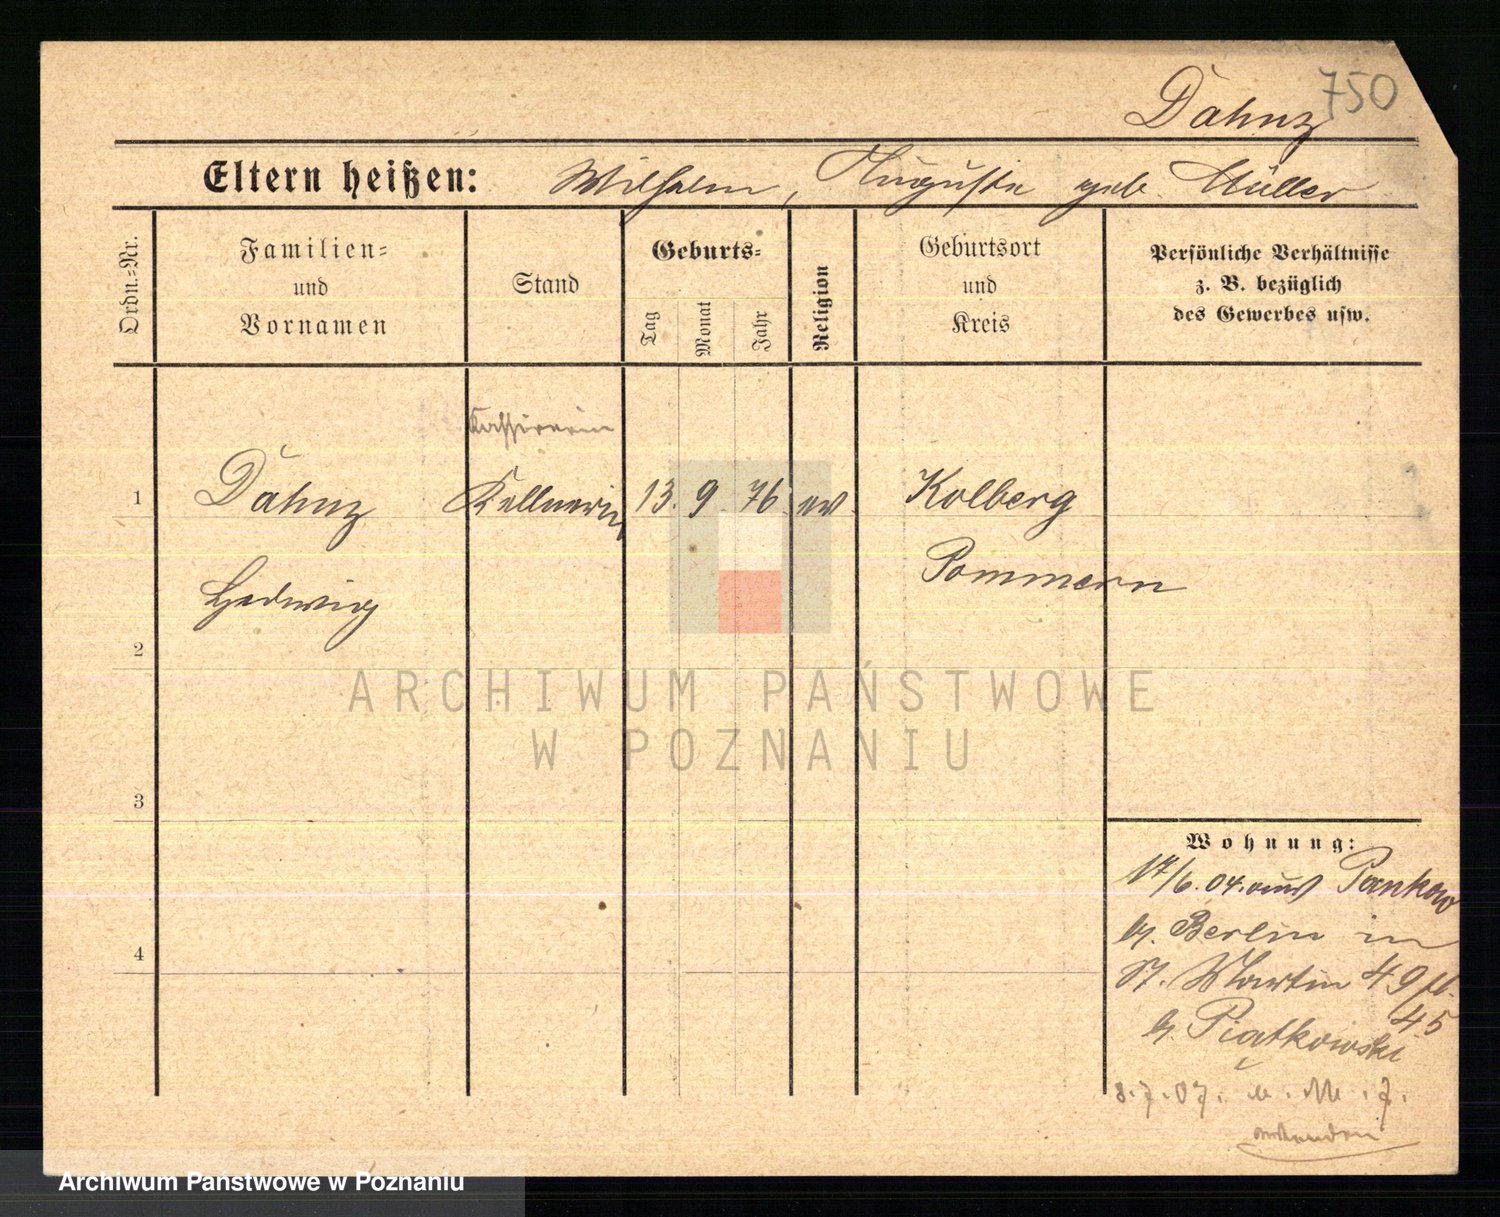 750
Dahnz
Eltern heißen: Wilhelm, Auguste geb. Müller
Ordn.-Nr.
Familien-
und
Vornamen
Stand
Geburts-
Tag
Monat
Jahr
Religion
Geburtsort
und
Kreis
Persönliche Verhältnisse
z. B. bezüglich
des Gewerbes usw.
Kassiererin
1 Dahnz Kellnerin 13. 9. 76. ev. Kolberg
Pommern
Hedwig
2
ARCHIWUM PAŃSTWOWE
W POZNANIU
3
Wohnung:
17/6. 04. aus Pankow
b. Berlin in
4
St. Martin 49
45
b. Piątkowski
8.7.07.
Archiwum Państwowe w Poznaniu